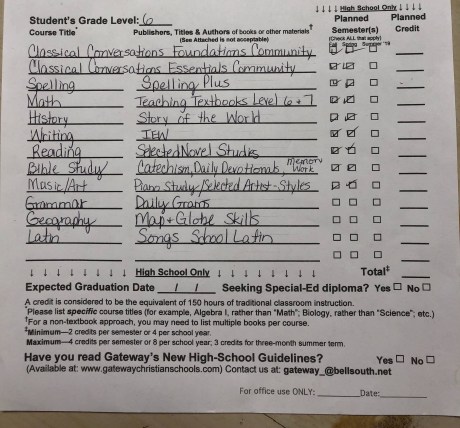 ↓ ↓ ↓ ↓ High School Only ↓ ↓ ↓ ↓
Student's Grade Level: 6 Planned Planned
Course Title* Publishers, Titles & Authors of books or other materials† Semester(s) Credit
(See Attached is not acceptable) (Check ALL that apply)
Fall Spring Summer '19
Classical Conversations Foundations Community ☑ ☑ ☐
Classical Conversations Essentials Community ☑ ☑ ☐
Spelling Spelling Plus ☑ ☑ ☐
Math Teaching Textbooks Level 6+7 ☑ ☑ ☐
History Story of the World ☑ ☑ ☐
Writing IEW ☑ ☑ ☐
Reading Selected Novel Studies ☑ ☑ ☐
Bible Study Catechism, Daily Devotionals, Memory Work ☑ ☑ ☐
Music/Art Piano Study/Selected Artist-Styles ☑ ☑ ☐
Grammar Daily Grams ☐ ☐ ☐
Geography Map + Globe Skills ☐ ☐ ☐
Latin Songs School Latin ☐ ☐ ☐
☐ ☐ ☐
↓ ↓ ↓ ↓ ↓ ↓ ↓ High School Only ↓ ↓ ↓ ↓ ↓ ↓ Total‡
Expected Graduation Date / / Seeking Special-Ed diploma? Yes ☐ No ☐
A credit is considered to be the equivalent of 150 hours of traditional classroom instruction.
*Please list specific course titles (for example, Algebra I, rather than "Math"; Biology, rather than "Science"; etc.)
†For a non-textbook approach, you may need to list multiple books per course.
‡Minimum—2 credits per semester or 4 per school year.
Maximum—4 credits per semester or 8 per school year; 3 credits for three-month summer term.
Have you read Gateway's New High-School Guidelines? Yes ☐ No ☐
(Available at: www.gatewaychristianschools.com) Contact us at: gateway_@bellsouth.net
For office use ONLY: Date: